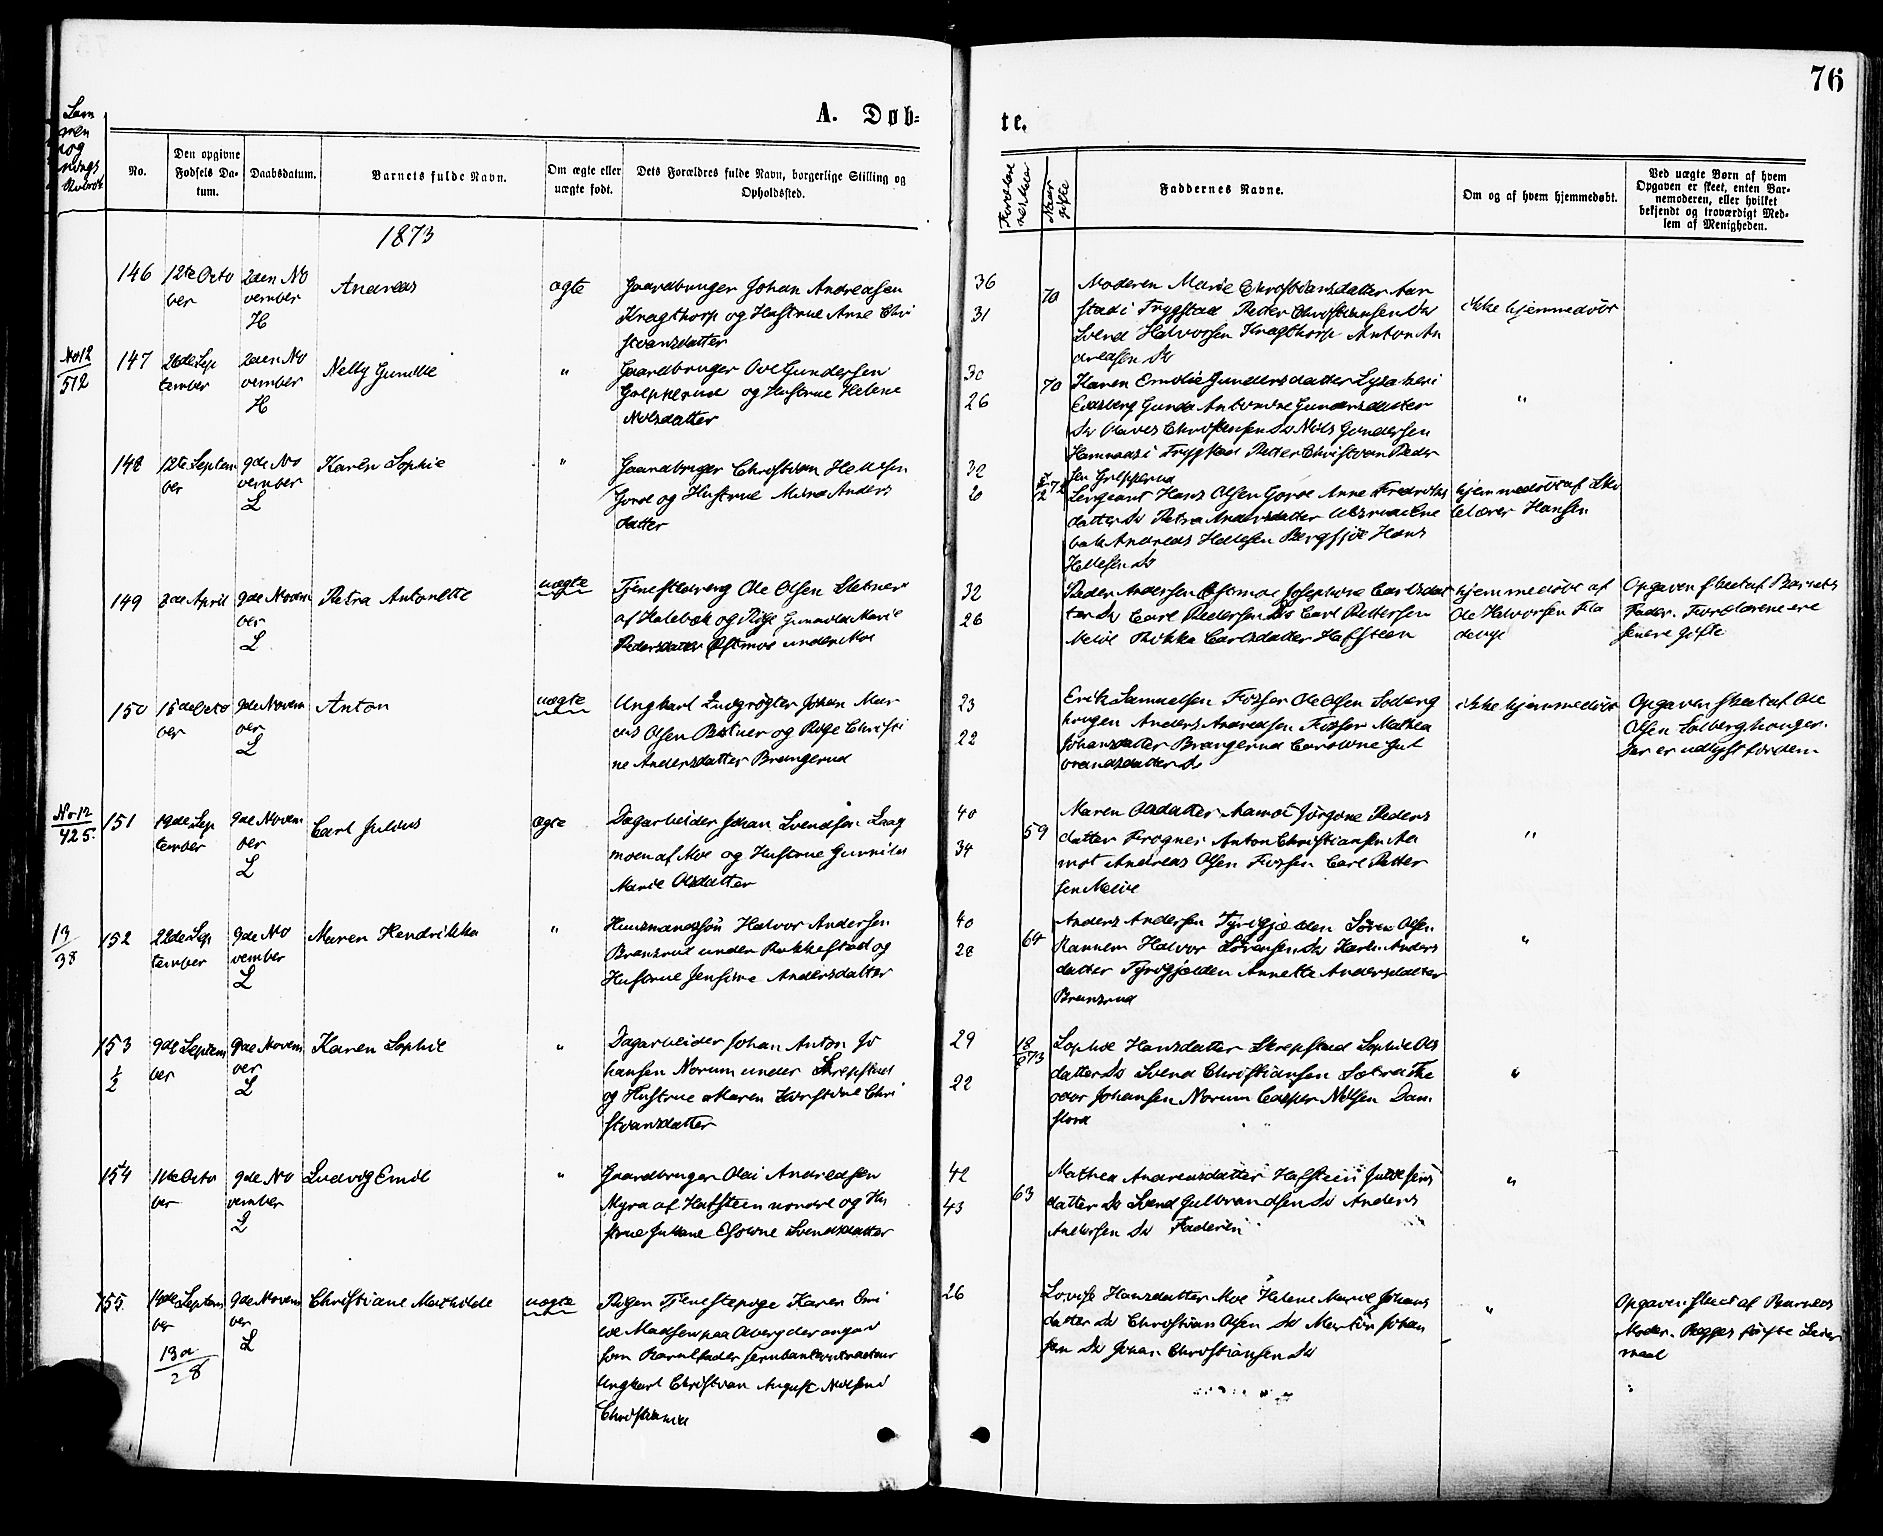 76
A. Døb=
te.
Sam
men
og
nings
No.
Den opgivne
Fødsels Da-
tum.
Daabsdatum.
Barnets fulde Navn.
Om ægte eller
uægte født.
Dets Forældres fulde Navn, borgerlige Stilling og
Opholdssted.
Naar
gifte
Faddernes Navne.
Om og af hvem hjemmedøbt.
Ved uægte Børn af hvem
Opgaven er skeet, enten Bar-
nemoderen, eller hvilket
bekjendt og troværdigt Med-
lem af Menigheden.
1873
146
12te Octo
ber
2den No
vember
H
Andreas
ægte
Gaardbruger Johan Andreasen
Kragthorp og Hustrue Anne Chri
stiansdatter
36
31
70
Moderen Marie Christiansdatter
stad i Trygstad Petter Christiansen Do
Svend Halvorsen Kragthorp Anton An
dreasen Do
ikke hjemmedøbt
No 12
512
147
26de Sep
tember
2den No
vember
H
Nelly Gundbe
"
Gaardbruger Ove Gundersen
og Hustrue Helene
Nilsdatter
30
26
70
Karen Emilie Gundersdatter
Eidsberg Gunda Antonine Gundersdatter
Do Olaves Christensen Do Nils Gundersen
Trygstad Petter Christian Peder
sen
"
148
12te Septem
ber
9de No
vember
L
Karen Sophie
"
Gaardbruger Christian Hellesen
og Hustrue Mina Anders
datter
32
20
Sergeant Hans Olsen Anne Fredriks
datter Do Petra Andersdatter
Andreas Hellesen Bergsjø Hans
Hellesen Do
hjemmedøbt af Sko
lelærer Hansen
149
3de April
9de Novem
ber
L
Petra Antonette
uægte
Ole Olsen
af Holebæk og Pige Gunnilda Marie
Pedersdatter Østmoe under Moe
32
26
Peder Andersen Østmoe Josephine Carlsdat
ter Do Carl Pedersen Do Carl Pettersen
Rikka Carlsdatter Hafsteen
hjemmedøbt af
Ole Halvorsen Fla
Opgaven skeet af Barnets
Fader. Forældrene ere
senere gifte
150
15de Octo
ber
9de Novem
ber
L
Anton
uægte
Ungkarl Johan Mar
ius Olsen og Pige Christi
ne Andersdatter Brangerud
23
22
Erik Samuelsen Fosser Ole Olsen Solberg
haugen Anders Andreasen Fosser Mathea
Johansdatter Brangerud Caroline Gul
brandsdatter Do
ikke hjemmedøbt
Opgaven skeet af Ole
Olsen Solberghaugen.
Der er udlyst for dem
No 12
425.
151
19de Sep
tember
9de Novem
ber
L
Carl Julius
ægte
Dagarbeider Johan Svendsen Laag
moen af Moe og Hustrue Gunnilda
Marie Olsdatter
40
34
59
Maren Olsdatter Aamot Jørgine Peders
datter Frogner Anton Christiansen Aa
mot Andreas Olsen Fossen Carl Petter
sen
"
13
38
152
22de Sep
tember
9de No
vember
L
Maren Hendrikka
"
Huusmandssøn Halvor Andersen
Brensrud under Rakkestad og
Hustrue Jensine Andersdatter
40
28
64
Anders Andersen Tyrigjælden Søren Olsen
Halvor Sørensen Do Karen Anders
datter Tyrigjelden Annette Andersdatter
Brensrud
"
153
1
2
9de Septem
ber
9de Novem
ber
L
Karen Sophie
"
Dagarbeider Johan Anton Jo
hansen Norum under Skrepstad
og Hustrue Maren Kirstine Chri
stiansdatter
29
22
18
6 73
Sophie Hansdatter Skrepstad Sophie Ols
datter Do Svend Christiansen Sætra The
odor Johansen Norum Casper Nilsen Dam
"
154
11te Octo
ber
9de No
vember
L
Ludvig Emil
"
Gaardbruger Olai Andreasen
Myra af Hafsteen nordre og Hu
strue Juliane Elovine Svendsdatter
42
43
63
Mathea Andreasdatter Hafsteen Julie Jens
datter Do Svend Gulbrandsen Do Anders
Andersen Do Faderen
"
155.
14de Septem
ber
9de Novem
ber
L
13a
28
Christiane Mathilde
uægte
Pigen Tjenestepige Karen Emi
lie Madsen paa Aaberg der angav
som Barnefader
Ungkarl Christian August Nilsen i
Christiania
26
Lovise Hansdatter Moe Helene Marie Johans
datter Do Christian Olsen Do Martin Johan
sen Do Johan Christiansen Do
"
Opgaven skeet af Barnets
Moder. Begges første Leier
maal